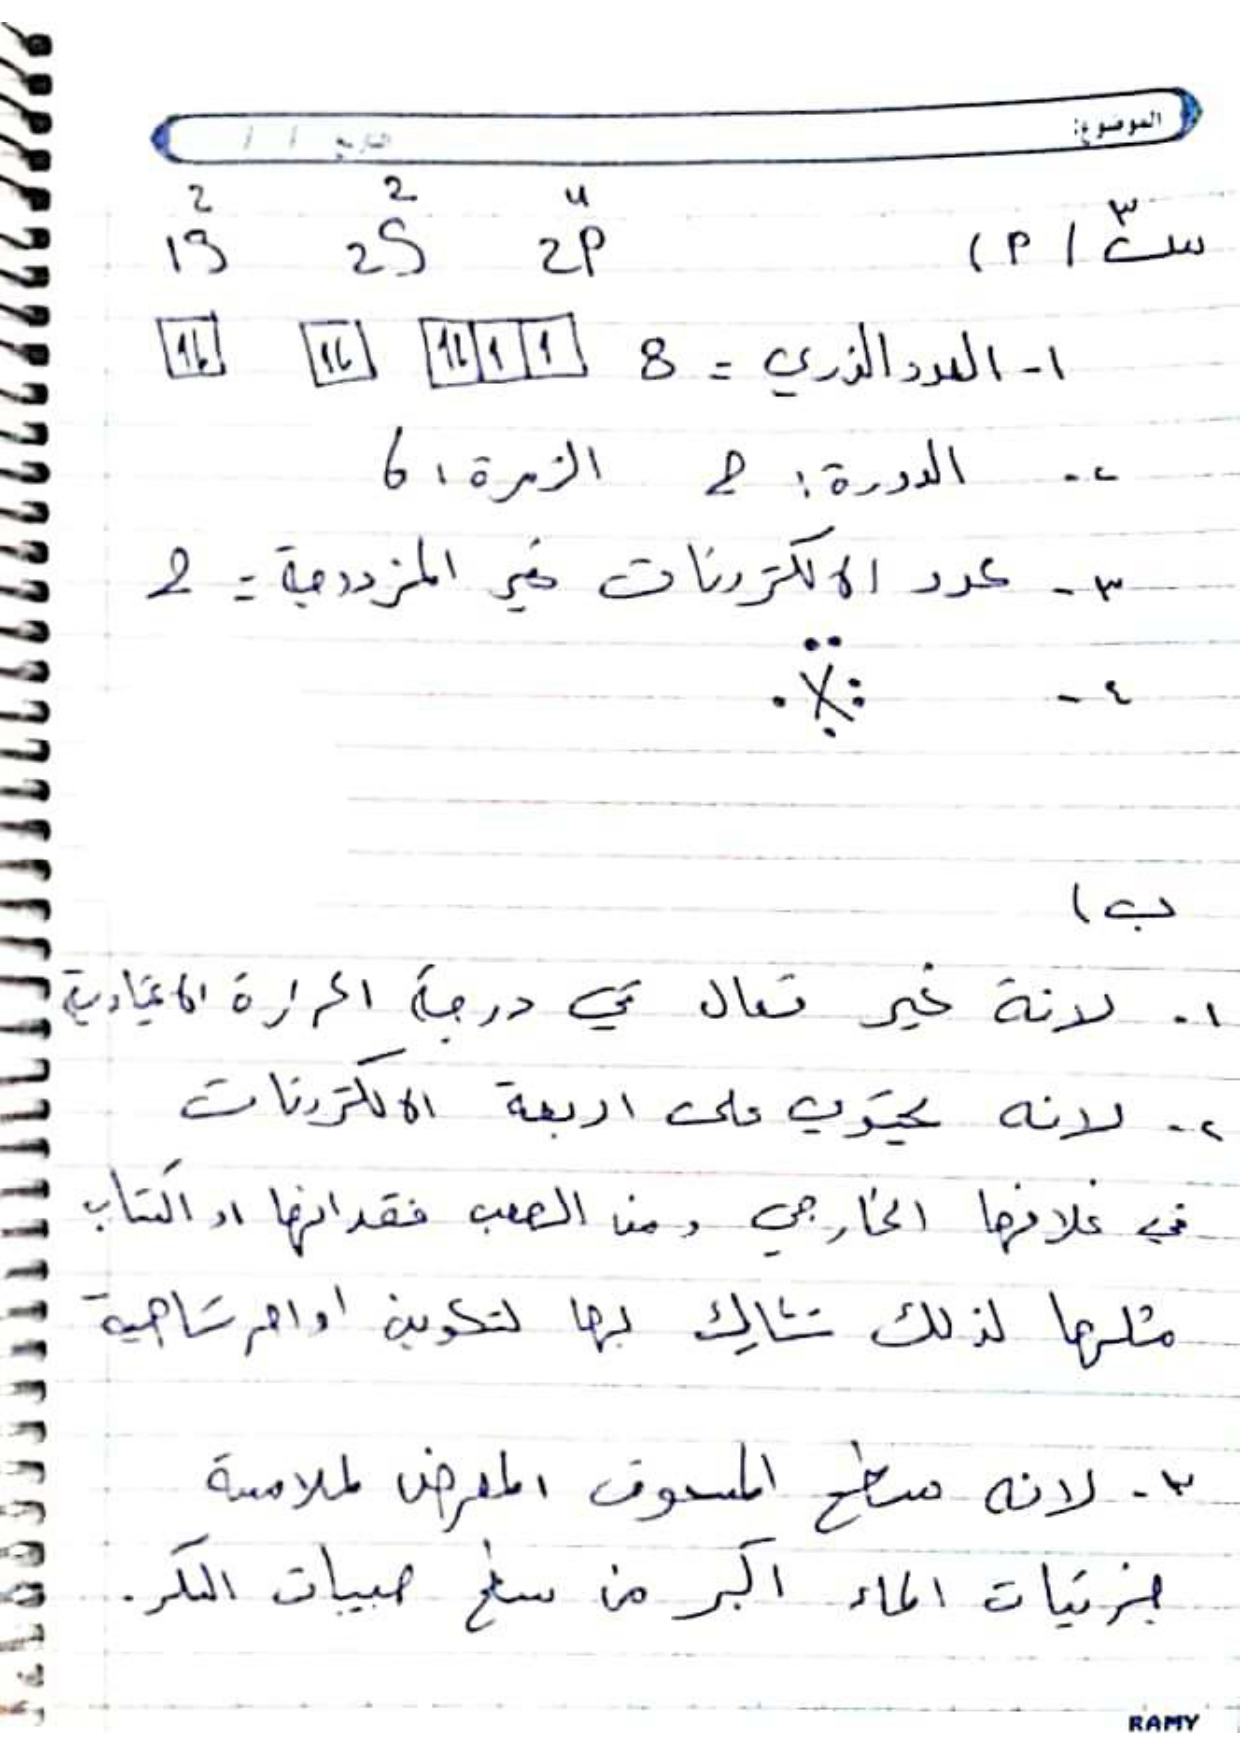 الموضوع:
التاريخ / /
س٣ / (أ
1S² 2S² 2P⁴
١- العدد الذري = 8 [↑↓] [↑↓] [↑↓][↑][↑]
٢- الدورة: 2 الزمرة: 6
٣- عدد الالكترونات غير المزدوجة = 2
٤- X
ب)
١- لانة غير فعال في درجة الحرارة الاعتيادية
٢- لانه يحتوي على اربعة الالكترونات
في غلافها الخارجي ومن الصعب فقدانها او اكتساب
مثلها لذلك تشارك بها لتكوين اواصر تساهمية
٣- لانه سطح المسحوق المعرض لملامسة
جزيئات الماء اكبر من سطح حبيبات السكر.
RAMY